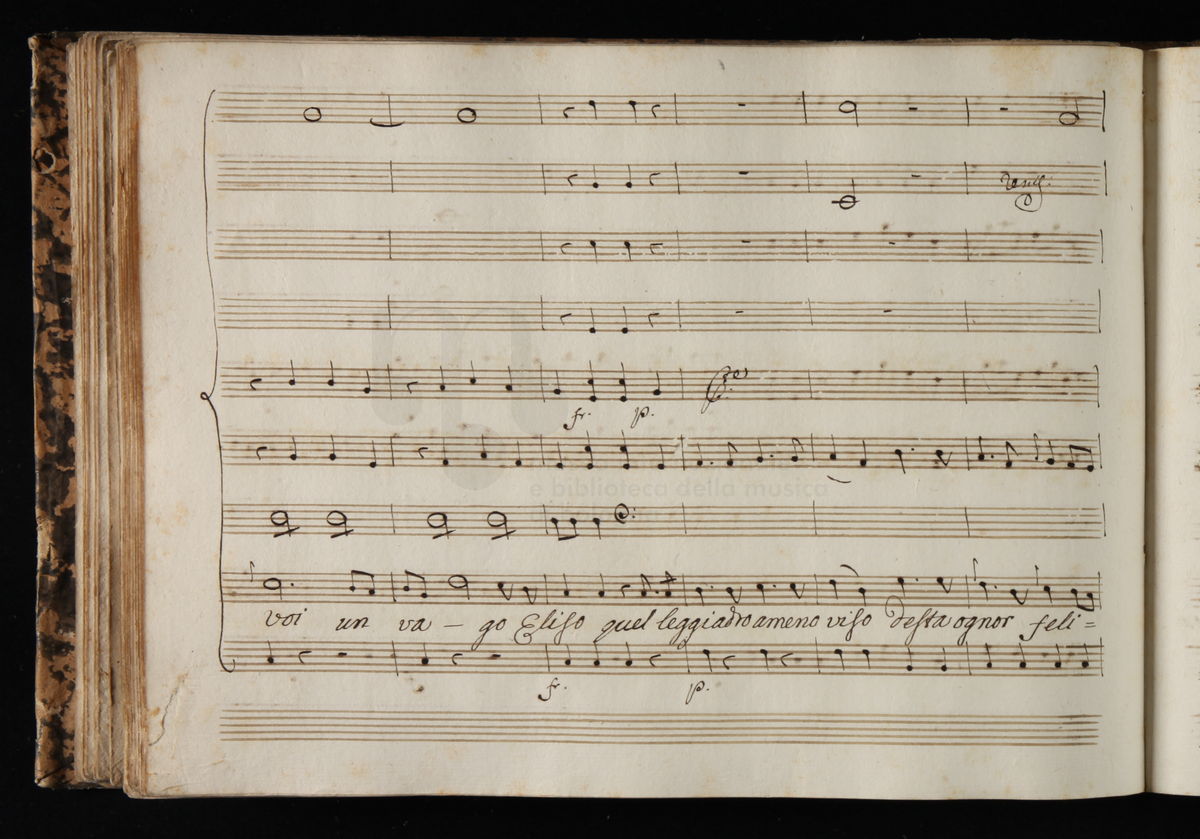 fr. p.
e biblioteca della musica
voi un va - go Eliso quel leggiadro ameno viso desta ognor feli=
fr. p.